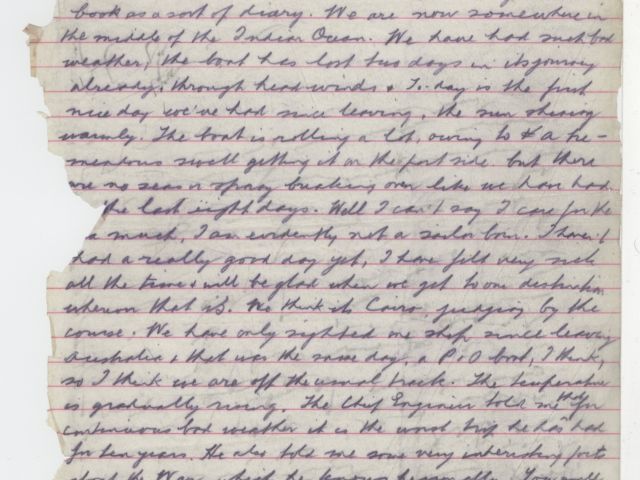 book as a sort of diary. We are now somewhere in
the middle of the Indian Ocean. We have had such bad
weather, the boat has lost two days in its journey
already, through head winds & To-day is the first
nice day we've had since leaving, the sun shining
warmly. The boat is rolling a lot, owing to a tre-
meadous swell getting it on the port side. but there
are no seas or spray breaking over like we have had
the last eight days. Well I can't say I care for the
much, I am evidently not a sailor born. I haven't
had a really good day yet, I have felt very sick
all the time & will be glad when we get to our destination
wherever that is. We think its Cairo, judging by the
course. We have only sighted one ship since leaving
Australia & that was the same day, a P & O boat, I think,
so I think we are off the usual track. The temperature
is gradually rising. The Chief Engineer told me that for
continuous bad weather it is the worst trip he has had
for ten years. He also told me some very interesting facts
about the War, which he knows personally. You will